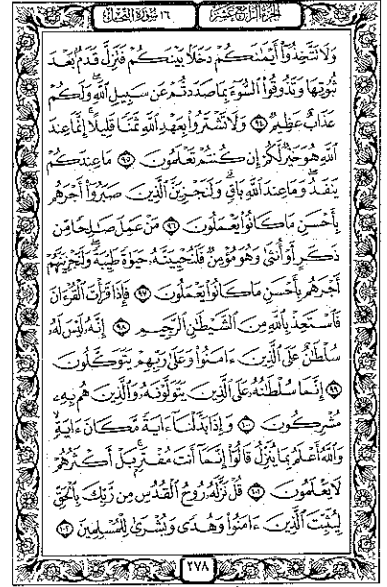 الجزء الرابع عشر ١٦ سورة النحل
وَلَا تَتَّخِذُوٓا۟ أَيْمَـٰنَكُمْ دَخَلًۢا بَيْنَكُمْ فَتَزِلَّ قَدَمٌۢ بَعْدَ
ثُبُوتِهَا وَتَذُوقُوا۟ ٱلسُّوٓءَ بِمَا صَدَدتُّمْ عَن سَبِيلِ ٱللَّهِ وَلَكُمْ
عَذَابٌ عَظِيمٌ ٩٤ وَلَا تَشْتَرُوا۟ بِعَهْدِ ٱللَّهِ ثَمَنًا قَلِيلًا إِنَّمَا عِندَ
ٱللَّهِ هُوَ خَيْرٌ لَّكُمْ إِن كُنتُمْ تَعْلَمُونَ ٩٥ مَا عِندَكُمْ
يَنفَدُ وَمَا عِندَ ٱللَّهِ بَاقٍ وَلَنَجْزِيَنَّ ٱلَّذِينَ صَبَرُوٓا۟ أَجْرَهُم
بِأَحْسَنِ مَا كَانُوا۟ يَعْمَلُونَ ٩٦ مَنْ عَمِلَ صَـٰلِحًا مِّن
ذَكَرٍ أَوْ أُنثَىٰ وَهُوَ مُؤْمِنٌ فَلَنُحْيِيَنَّهُۥ حَيَوٰةً طَيِّبَةً وَلَنَجْزِيَنَّهُمْ
أَجْرَهُم بِأَحْسَنِ مَا كَانُوا۟ يَعْمَلُونَ ٩٧ فَإِذَا قَرَأْتَ ٱلْقُرْءَانَ
فَٱسْتَعِذْ بِٱللَّهِ مِنَ ٱلشَّيْطَـٰنِ ٱلرَّجِيمِ ٩٨ إِنَّهُۥ لَيْسَ لَهُۥ
سُلْطَـٰنٌ عَلَى ٱلَّذِينَ ءَامَنُوا۟ وَعَلَىٰ رَبِّهِمْ يَتَوَكَّلُونَ
٩٩ إِنَّمَا سُلْطَـٰنُهُۥ عَلَى ٱلَّذِينَ يَتَوَلَّوْنَهُۥ وَٱلَّذِينَ هُم بِهِۦ
مُشْرِكُونَ ١٠٠ وَإِذَا بَدَّلْنَآ ءَايَةً مَّكَانَ ءَايَةٍ
وَٱللَّهُ أَعْلَمُ بِمَا يُنَزِّلُ قَالُوٓا۟ إِنَّمَآ أَنتَ مُفْتَرٍۭ بَلْ أَكْثَرُهُمْ
لَا يَعْلَمُونَ ١٠١ قُلْ نَزَّلَهُۥ رُوحُ ٱلْقُدُسِ مِن رَّبِّكَ بِٱلْحَقِّ
لِيُثَبِّتَ ٱلَّذِينَ ءَامَنُوا۟ وَهُدًى وَبُشْرَىٰ لِلْمُسْلِمِينَ ١٠٢
٢٧٨